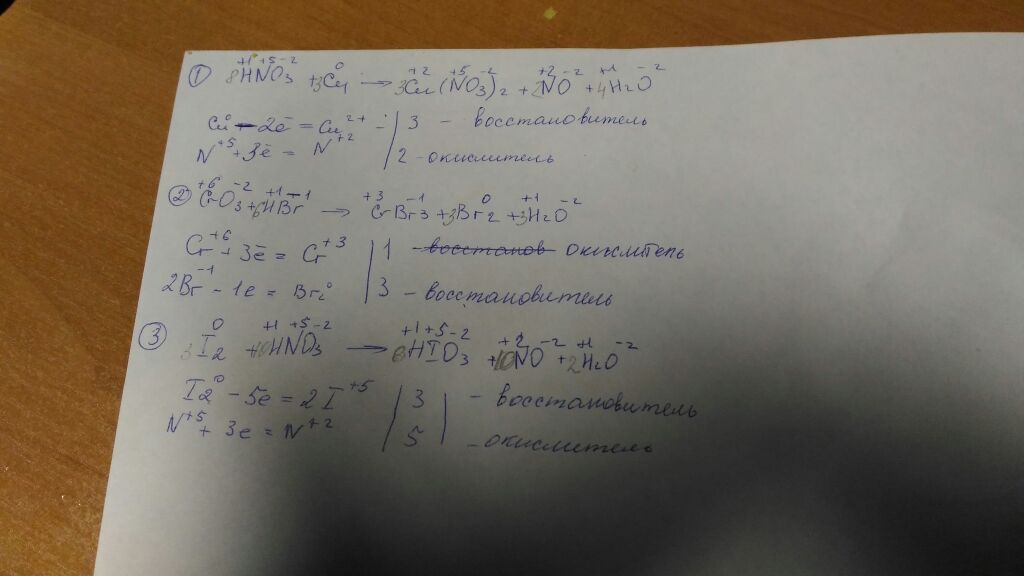 ① 8H⁺¹N⁺⁵O₃⁻² + 3Cu⁰ → 3Cu⁺²(N⁺⁵O₃⁻²)₂ + 2N⁺²O⁻² + 4H₂⁺¹O⁻²
Cu⁰ - 2ē = Cu²⁺ - | 3 - восстановитель
N⁺⁵ + 3ē = N⁺² | 2 - окислитель
② Cr⁺⁶O₃⁻² + 6H⁺¹Br⁻¹ → Cr⁺³Br₃⁻¹ + 3Br₂⁰ + 3H₂⁺¹O⁻²
Cr⁺⁶ + 3ē = Cr⁺³ | 1 восстанов окислитель
2Br⁻¹ - 1e = Br₂⁰ | 3 - восстановитель
③ 3I₂⁰ + 10H⁺¹N⁺⁵O₃⁻² → 6H⁺¹I⁺⁵O₃⁻² + 10N⁺²O⁻² + 2H₂⁺¹O⁻²
I₂⁰ - 5e = 2I⁺⁵ | 3 | - восстановитель
N⁺⁵ + 3e = N⁺² | 5 | - окислитель